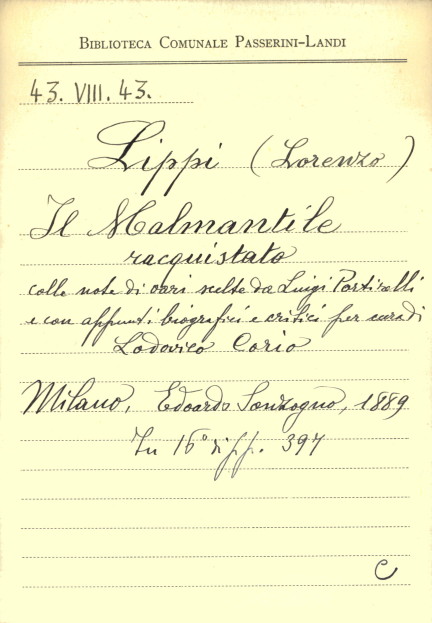 BIBLIOTECA COMUNALE PASSERINI-LANDI
43. VIII. 43.
Lippi (Lorenzo)
Il Malmantile
racquistato
colle note di vari scelte da Luigi Portirelli
e con appunti biografici e critici per cura di
Lodovico Corio
Milano, Edoardo Sonzogno, 1889
In 16° di pp. 394
C